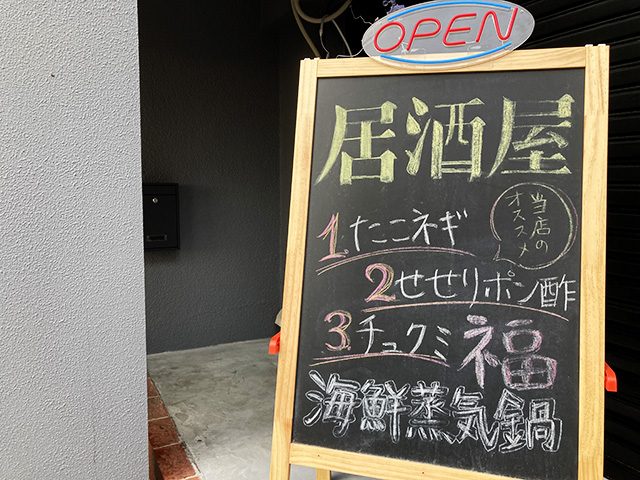 OPEN
居酒屋
当店の
オススメ
1.たこネギ
2.せせりポン酢
3.チュクミ
福
海鮮蒸気鍋